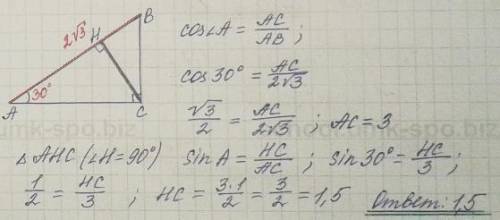 B
2√3
H
30°
A
C
cos∠A = AC/AB ;
cos 30° = AC/2√3
√3/2 = AC/2√3 ; AC = 3
△AHC (∠H = 90°) sin A = HC/AC ; sin 30° = HC/3 ;
1/2 = HC/3 ; HC = 3·1/2 = 3/2 = 1,5 Ответ: 1,5